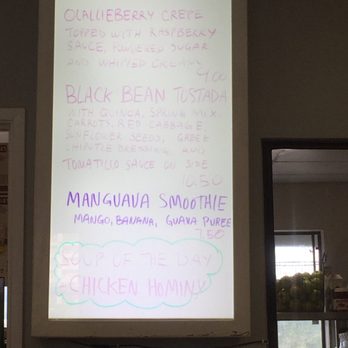 OLALLIEBERRY CREPE
TOPPED WITH RASPBERRY
SAUCE, POWDERED SUGAR
AND WHIPPED CREAM
9.00
BLACK BEAN TOSTADA
WITH QUINOA, SPRING MIX,
CARROTS, RED CABBAGE,
SUNFLOWER SEEDS, GREEK
CHIPOTLE DRESSING AND
TOMATILLO SAUCE ON SIDE
10.50
MANGUAVA SMOOTHIE
MANGO, BANANA, GUAVA PUREE
7.50
SOUP OF THE DAY
CHICKEN HOMINY